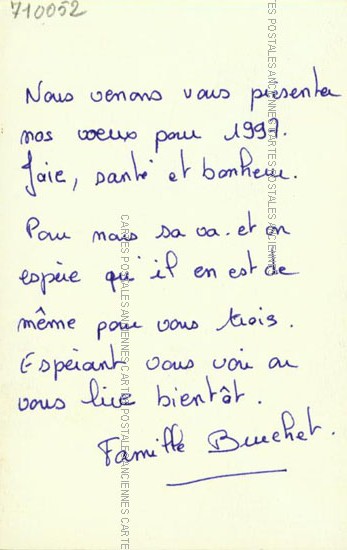 710052
Nous venons vous presenter
nos voeux pour 1997.
Joie, santé et bonheur.
Pour nous sa va. et on
espère qu'il en est de
même pour vous trois.
Espérant vous voir ou
vous lire bientôt.
Famille Buchet.
CARTES POSTALES ANCIENNES CARTES POSTALES ANCIENNES CARTES POSTALES ANCIENNES
CARTES POSTALES ANCIENNES CARTES POSTALES ANCIENNES CARTE